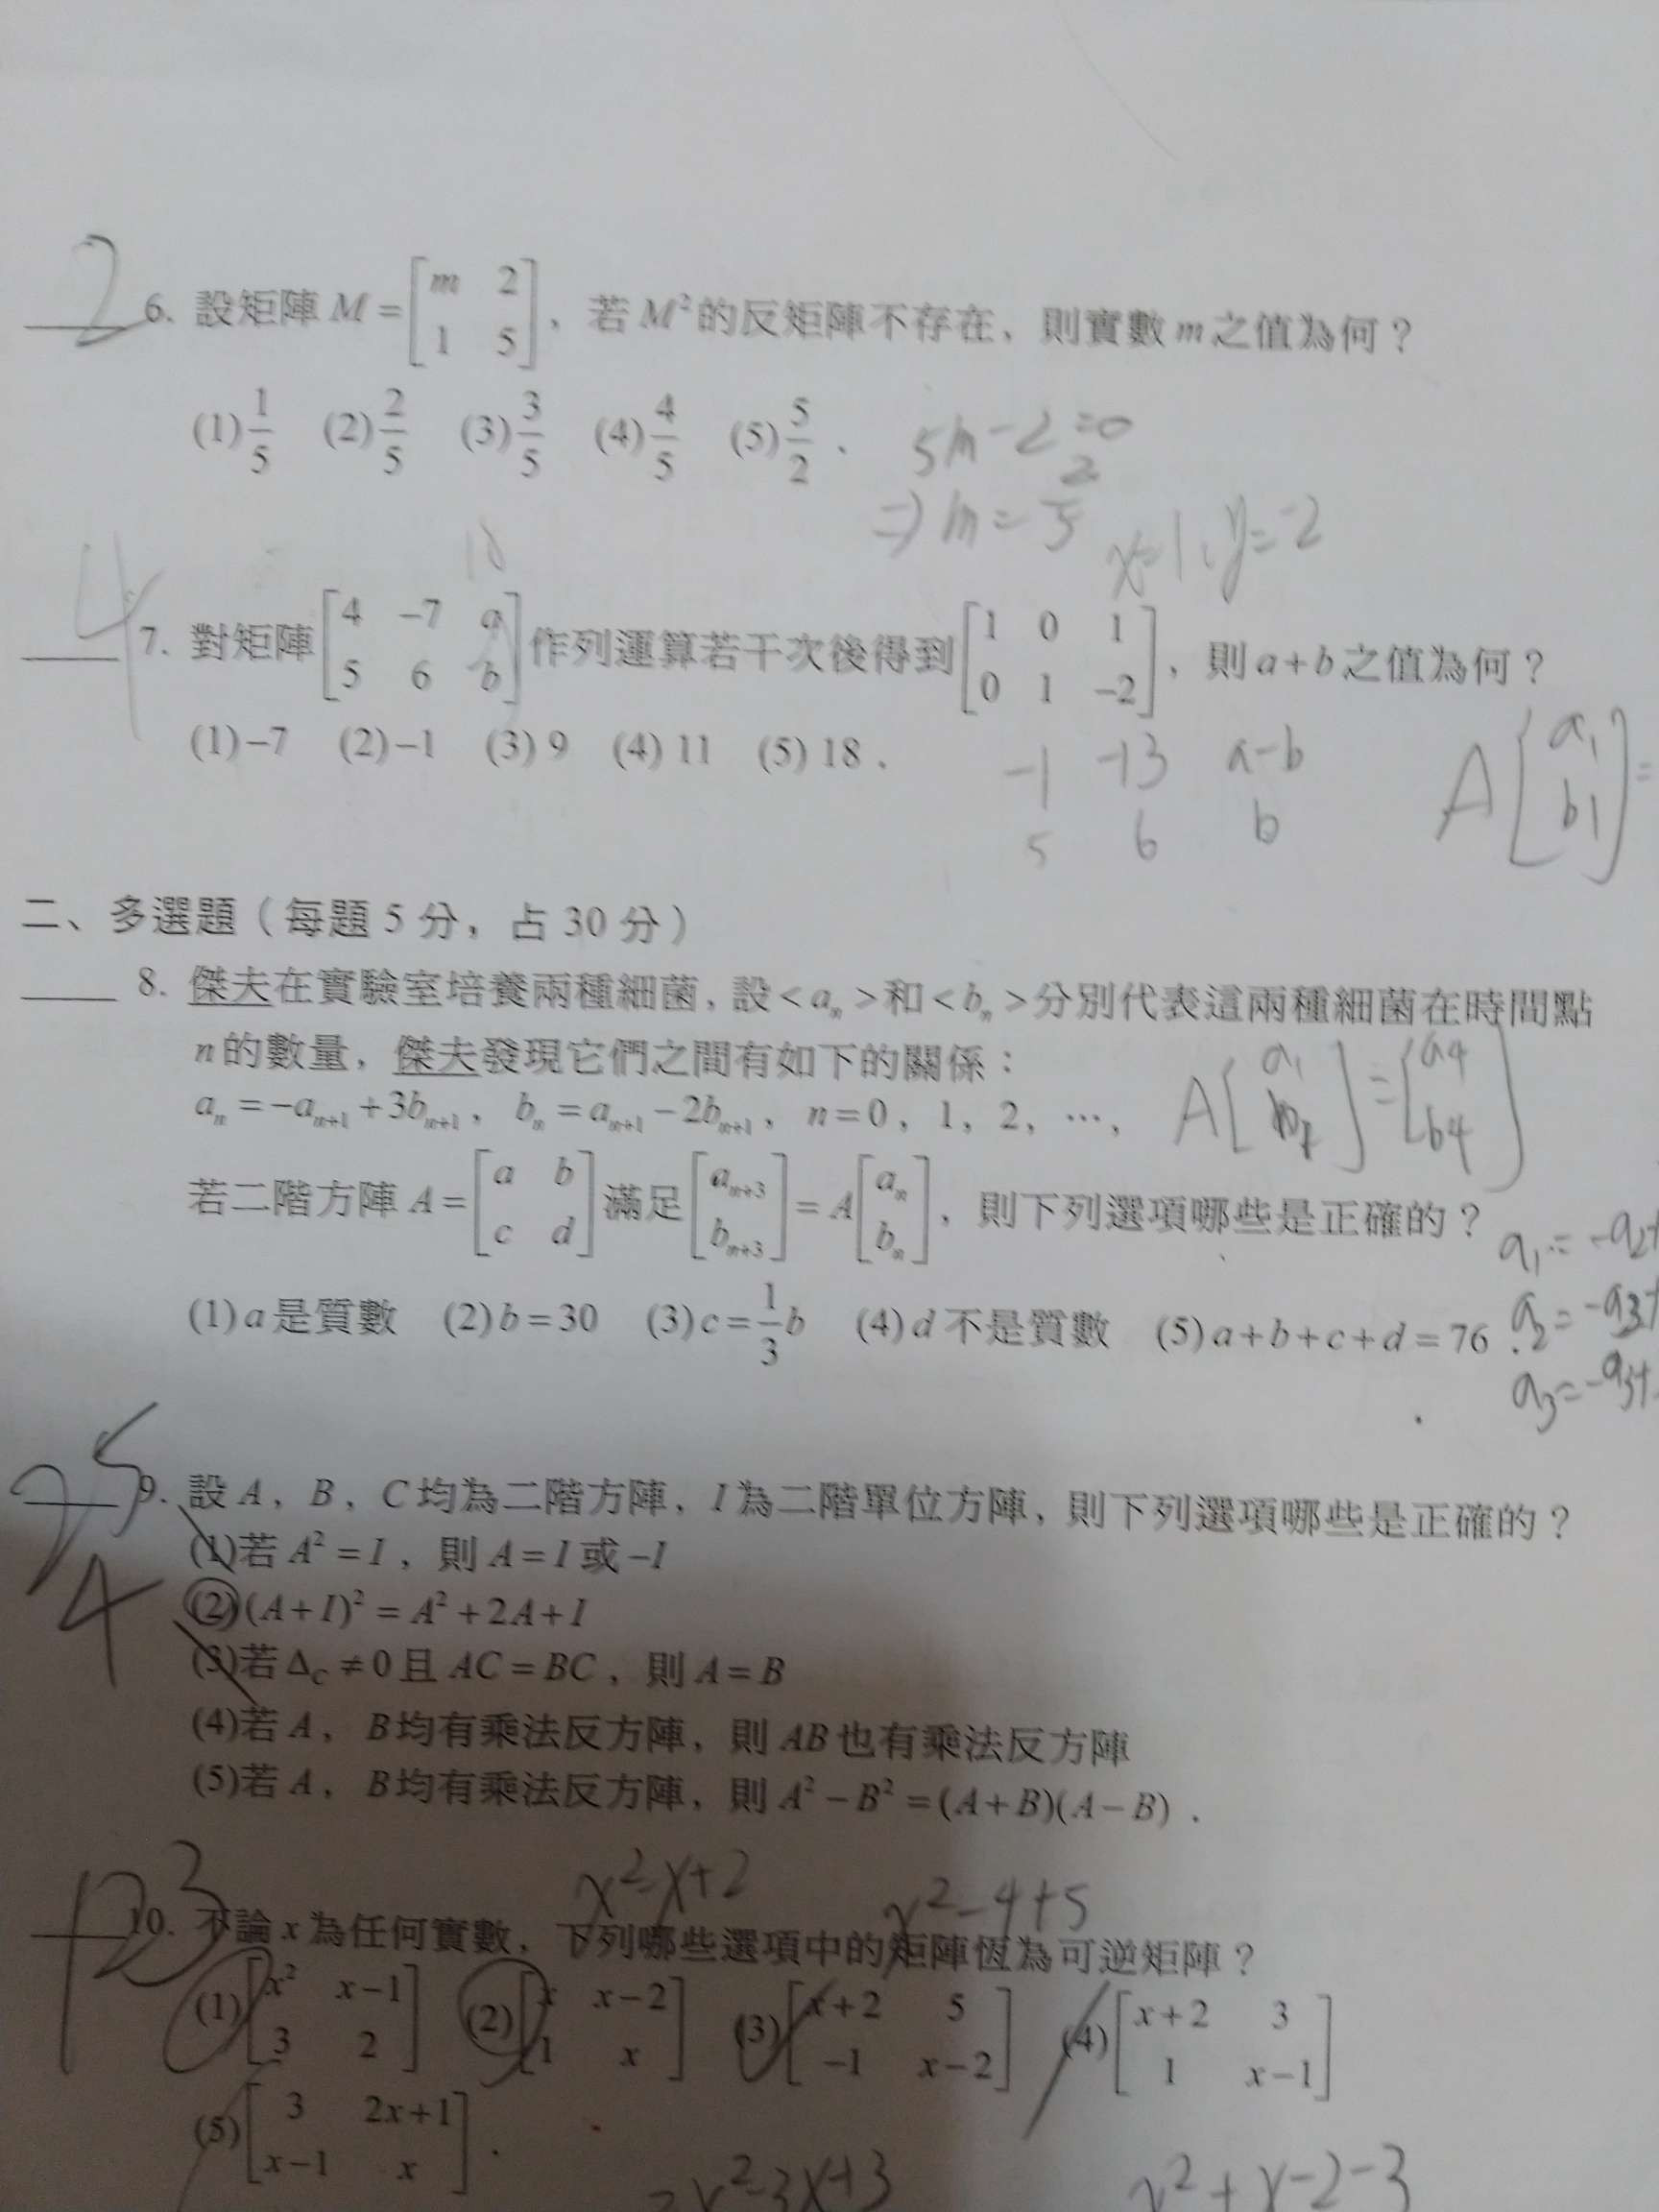 2
6. 設矩陣 M = [m 2; 1 5]，若 M² 的反矩陣不存在，則實數 m 之值為何？
(1) 1/5 (2) 2/5 (3) 3/5 (4) 4/5 (5) 5/2 .
5m-2=0
⇒ m = 2/5
x=1, y=-2
4
18
7. 對矩陣 [4 -7 a; 5 6 b] 作列運算若干次後得到 [1 0 1; 0 1 -2]，則 a+b 之值為何？
(1) -7 (2) -1 (3) 9 (4) 11 (5) 18 .
-1 -13 a-b
5 6 b
A [a₁; b1] =
二、多選題（每題 5 分，占 30 分）
8. 傑夫在實驗室培養兩種細菌，設 <aₙ> 和 <bₙ> 分別代表這兩種細菌在時間點
n 的數量，傑夫發現它們之間有如下的關係：
aₙ = -aₙ₊₁ + 3bₙ₊₁，bₙ = aₙ₊₁ - 2bₙ₊₁，n = 0，1，2，…，
A [a₁; b₁] = [a4; b4]
若二階方陣 A = [a b; c d] 滿足 [aₙ₊₃; bₙ₊₃] = A [aₙ; bₙ]，則下列選項哪些是正確的？
(1) a 是質數 (2) b = 30 (3) c = 1/3 b (4) d 不是質數 (5) a+b+c+d = 76 .
a₁ = -a₂+
a₂ = -a3+
a₃ = -a3+
25
4
9. 設 A，B，C 均為二階方陣，I 為二階單位方陣，則下列選項哪些是正確的？
(1)若 A² = I，則 A = I 或 -I
(2) (A+I)² = A² + 2A + I
(3)若 Δc ≠ 0 且 AC = BC，則 A = B
(4)若 A，B 均有乘法反方陣，則 AB 也有乘法反方陣
(5)若 A，B 均有乘法反方陣，則 A² - B² = (A+B)(A-B) .
x²-x+2
x²-4+5
123
10. 不論 x 為任何實數，下列哪些選項中的矩陣恆為可逆矩陣？
(1) [x² x-1; 3 2] (2) [x x-2; 1 x] (3) [x+2 5; -1 x-2] (4) [x+2 3; 1 x-1]
(5) [3 2x+1; x-1 x] .
2x²-3x+3
x²+x-2-3